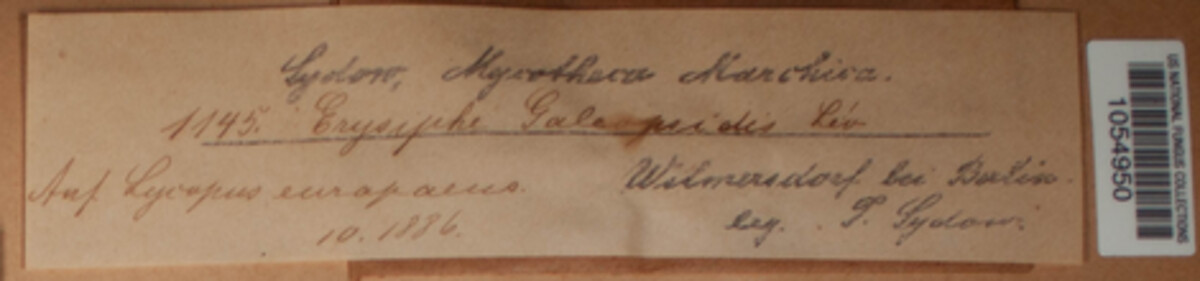 Sydow, Mycotheca Marchica.
1145. Erysiphe Galeopsidis Lév
Auf Lycopus europaeus.
10. 1886.
Wilmersdorf bei Berlin.
leg. P. Sydow.
US NATIONAL FUNGUS COLLECTIONS
1054950